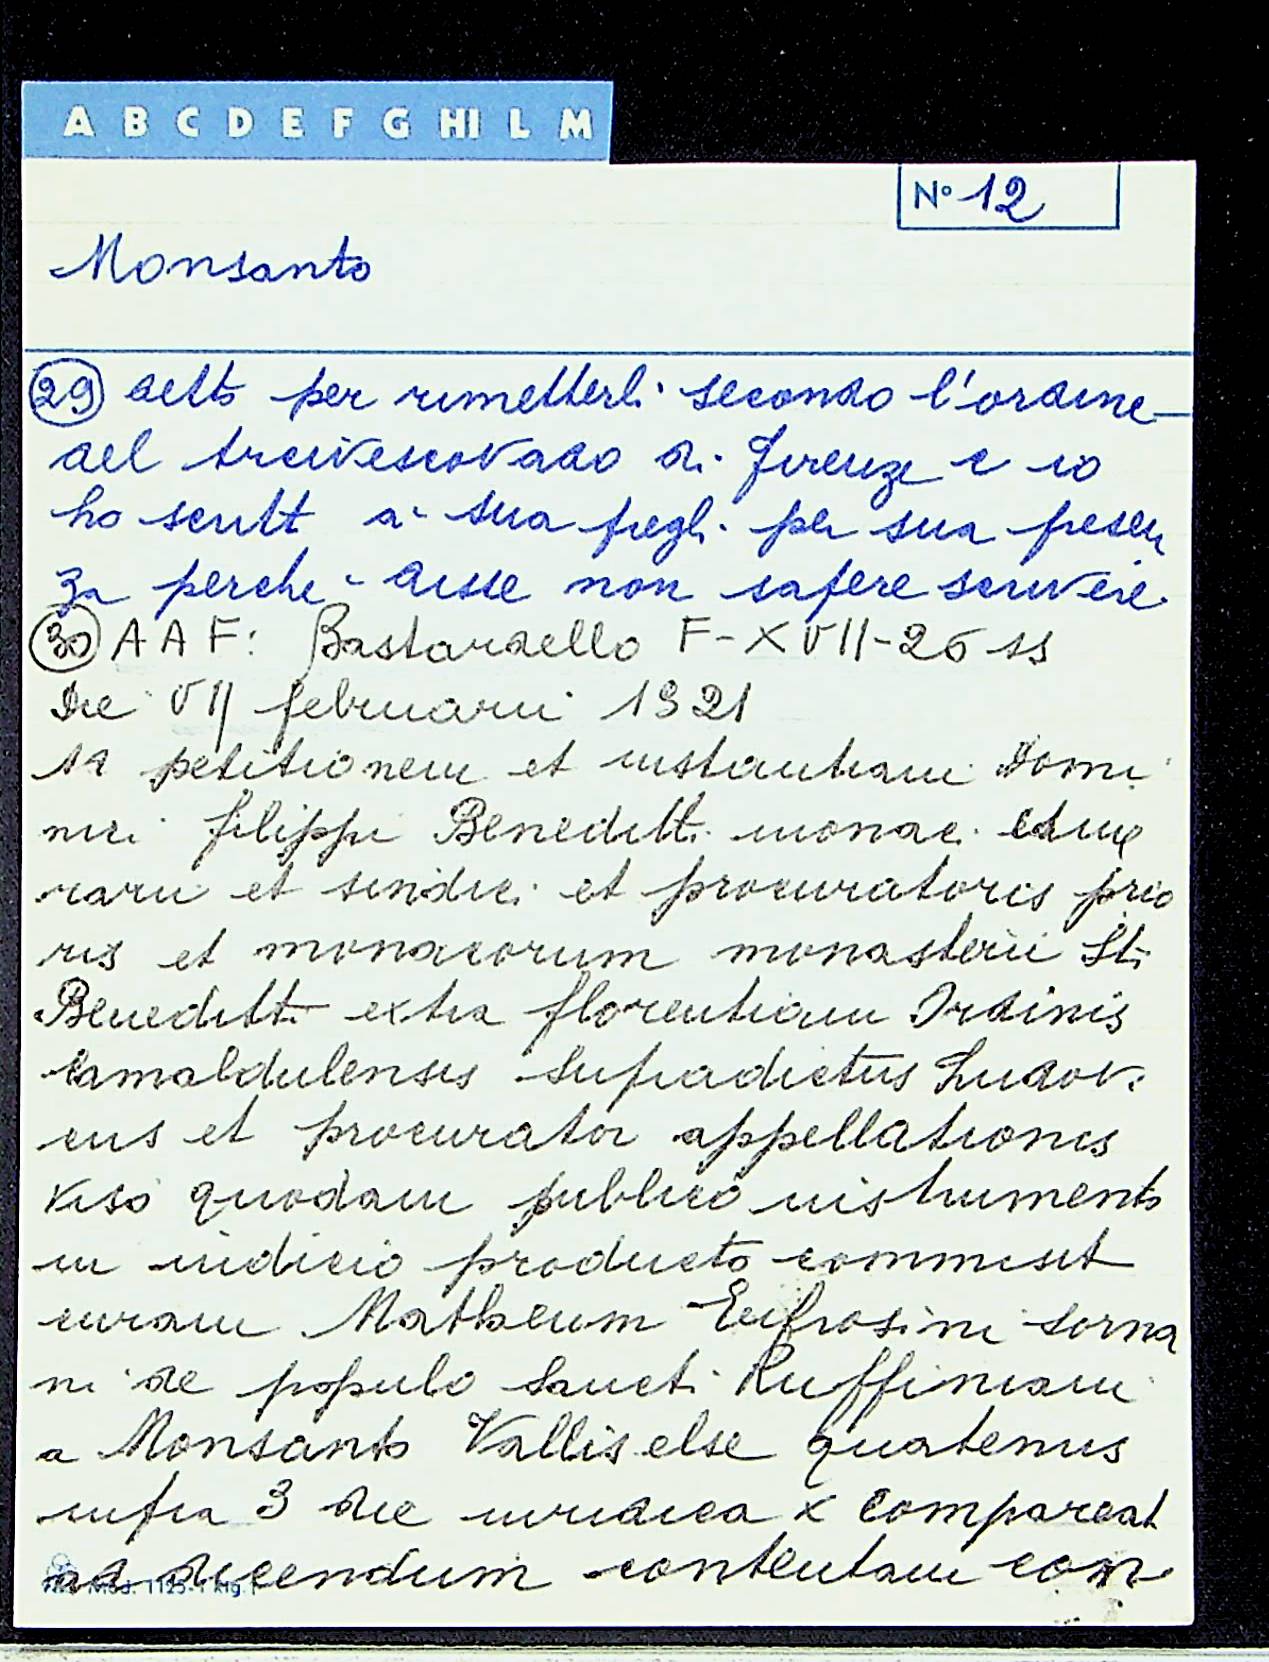 A B C D E F G HI L M
N° 12
Monsanto
29 detto per rimetterli secondo l'ordine
del Arcivescovado di Firenze e io
ho scritt a sua pregh. per sua presen
za perche - disse non sapere scrivere.
30 A A F: Bastardello F-XVII-26 ss
Die VII februarii 1521
Ad petitionem et instantiam Domi
nici filippi Beneditti monac.
rarii et sindici et procuratoris prio
ris et monacorum monasterii Sti
Beneditti extra florentiam Ordinis
Camaldulensis supradictus Ludov.
cus et procurator appellationis
viso quodam publico instrumento
in iudicio producto commisit
curam Matheum Eufrosini Sorna
ni de populo Sancti Ruffiniani
a Monsanto Vallis else quatenus
infra 3 die iuridica x compareat
ad dicendum contentam con
Mod. 1125-1 Rig.